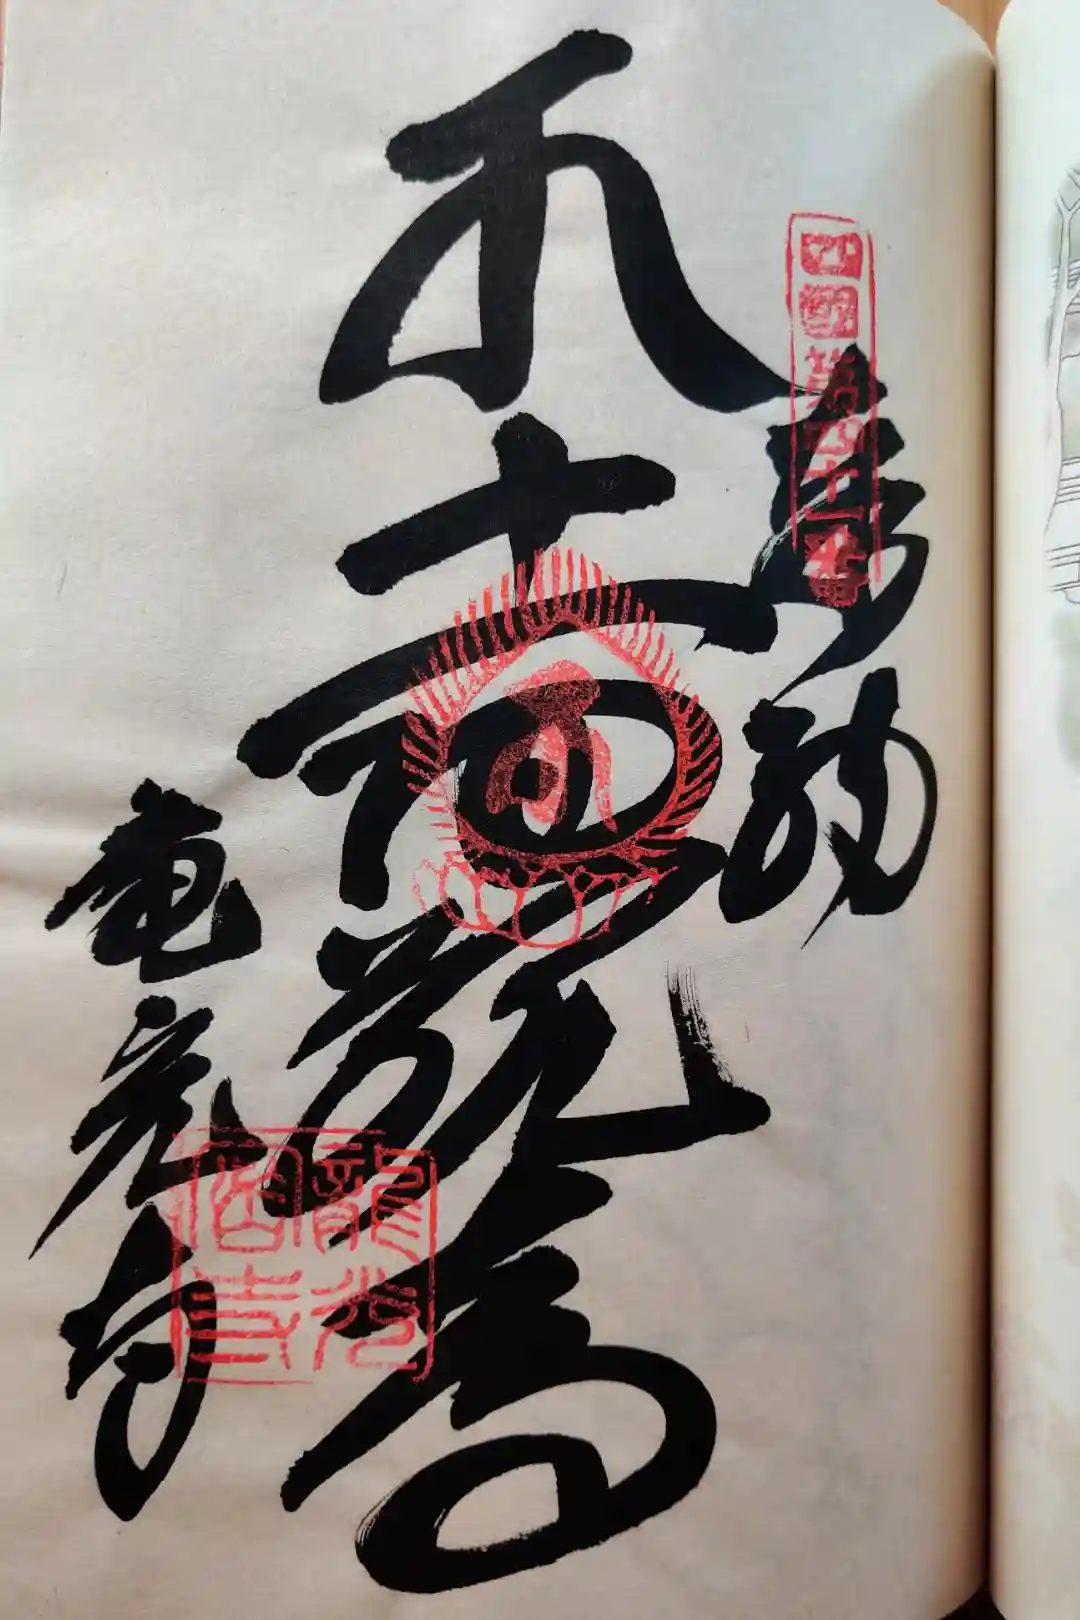 奉納
四国第四十一番
十一面観音
竜光寺